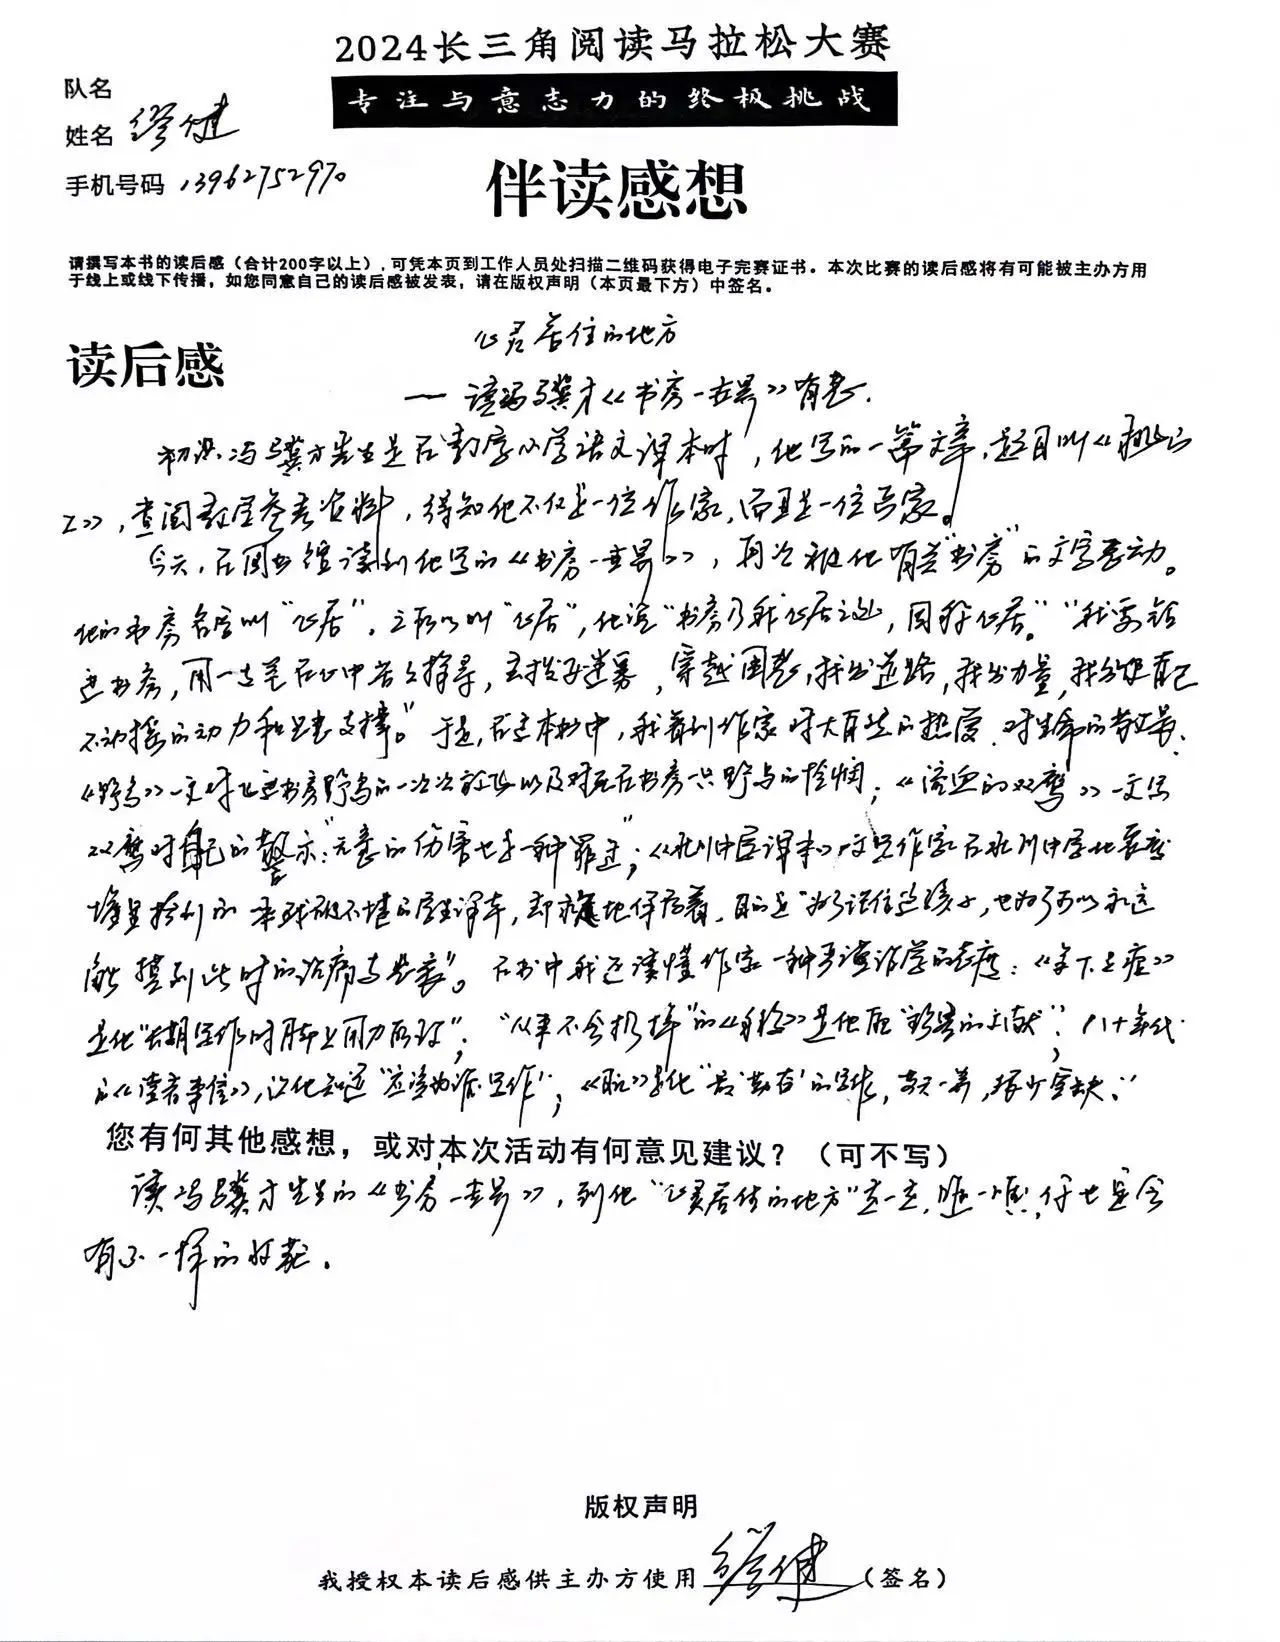 2024长三角阅读马拉松大赛
专注与意志力的终极挑战
队名
姓名 缪健
手机号码 13962752970
伴读感想
请撰写本书的读后感（合计200字以上），可凭本页到工作人员处扫描二维码获得电子完赛证书。本次比赛的读后感将有可能被主办方用
于线上或线下传播，如您同意自己的读后感被发表，请在版权声明（本页最下方）中签名。
读后感
心灵居住的地方
——读冯骥才《书房一世界》有感.
初识冯骥才先生是在教学小学语文课本时，他写的一篇文章，题目叫《挑山
工》，查阅教学参考资料，得知他不仅是一位作家，而且是一位画家。
今天，在图书馆读到他写的《书房一世界》，再次被他有关"书房"的文字感动。
他的书房名字叫"心居"，之所以叫"心居"，他说"书房乃我心居之地，因称心居。""我要钻
进书房，用一支笔在心中苦苦探寻，去拨开迷雾，穿越困惑，找出道路，找出力量，找出使自己
不动摇的动力和思想支撑。"于是，在这本书中，我看到作家对大自然的热爱、对生命的敬畏、
《野鸟》一文对飞进书房野鸟的一次次放飞以及对死在书房一只野鸟的怜悯；《流血的双鹰》一文写
双鹰对自己的警示："无意的伤害也是一种罪过"；《北川中学课本》一文写作家在北川中学地震废
墟里捡到的一本残破不堪的学生课本，却
地保存着，目的是"为了记住这孩子，也为了可以永远
能摸到此时的伤痛与悲哀"。在书中我还读懂作家一种严谨治学的态度：《案下足痕》
是他"长期写作时用脚上用力所致"；"从来不会扔掉"的《手稿》是他眼"珍贵的文献"；八十年代
的《读者来信》，让他知道"应该为谁写作"；是他"最勤奋"的写作，每天一篇，极少空缺."
您有何其他感想，或对本次活动有何意见建议？（可不写）
读冯骥才先生的《书房一世界》，到他"心灵居住的地方"走一走，瞧一瞧，你也定会
有不一样的收获.
版权声明
我授权本读后感供主办方使用 缪健 (签名)